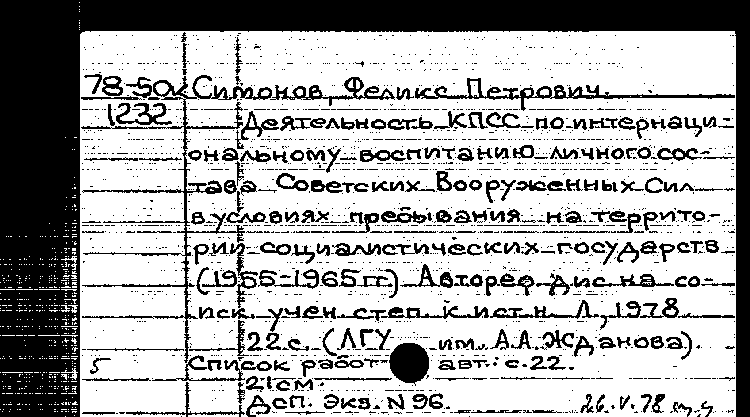 78-50к Симонов, Феликс Петрович.
1232 Деятельность КПСС по интернаци-
ональному воспитанию личного сос-
тава Советских Вооруженных Сил
в условиях пребывания на террито-
рии социалистических государств
(1955-1965 гг.) Автореф. дис. на со-
иск. учен. степ. к. ист. н. Л., 1978.
22 с. (ЛГУ им. А.А. Жданова).
5 Список работ авт.: с. 22.
21 см.
Дсп. Экз. N 96. 26.V.78